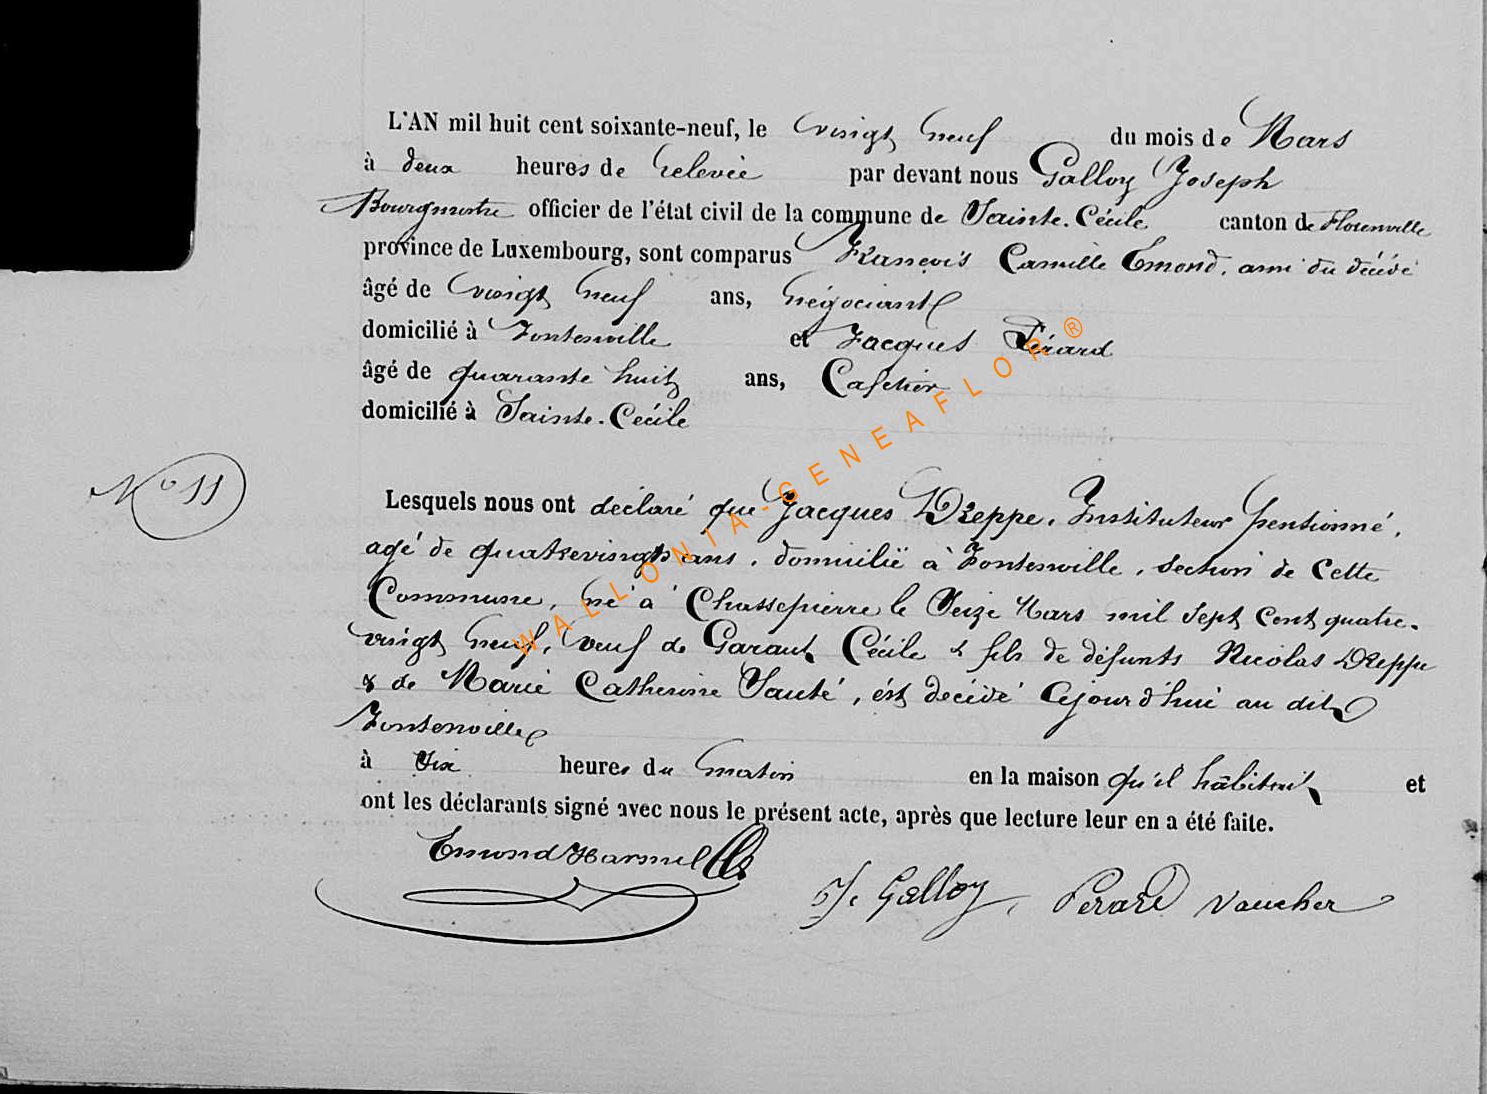 L'AN mil huit cent soixante-neuf, le vingt neuf du mois de Mars
à deux heures de relevée par devant nous Galloy Joseph
Bourgmestre officier de l'état civil de la commune de Sainte-Cécile canton de Florenville
province de Luxembourg, sont comparus François Camille Emond, ami du décédé
âgé de vingt neuf ans, négociant
domicilié à Fontenoille et Jacques Pérard
âgé de quarante huit ans, Cafetier
domicilié à Sainte-Cécile
N° 11
Lesquels nous ont déclaré que Jacques Dreppe, Instituteur pentionné,
agé de quatrevingts ans, domicilié à Fontenoille, section de cette
Commune, né à Chassepierre le Seize Mars mil sept cent quatre-
vingt neuf, veuf de Garant Cécile & fils de défunts Nicolas Dreppe
& de Marie Catherine Santé, est décédé cejourd'hui au dit
Fontenoille
à six heures du matin en la maison qu'il habitait et
ont les déclarants signé avec nous le présent acte, après que lecture leur en a été faite.
Emond Harmel
J. Galloy Perard Vaucher
WALLONIA-GENEAFLOR®